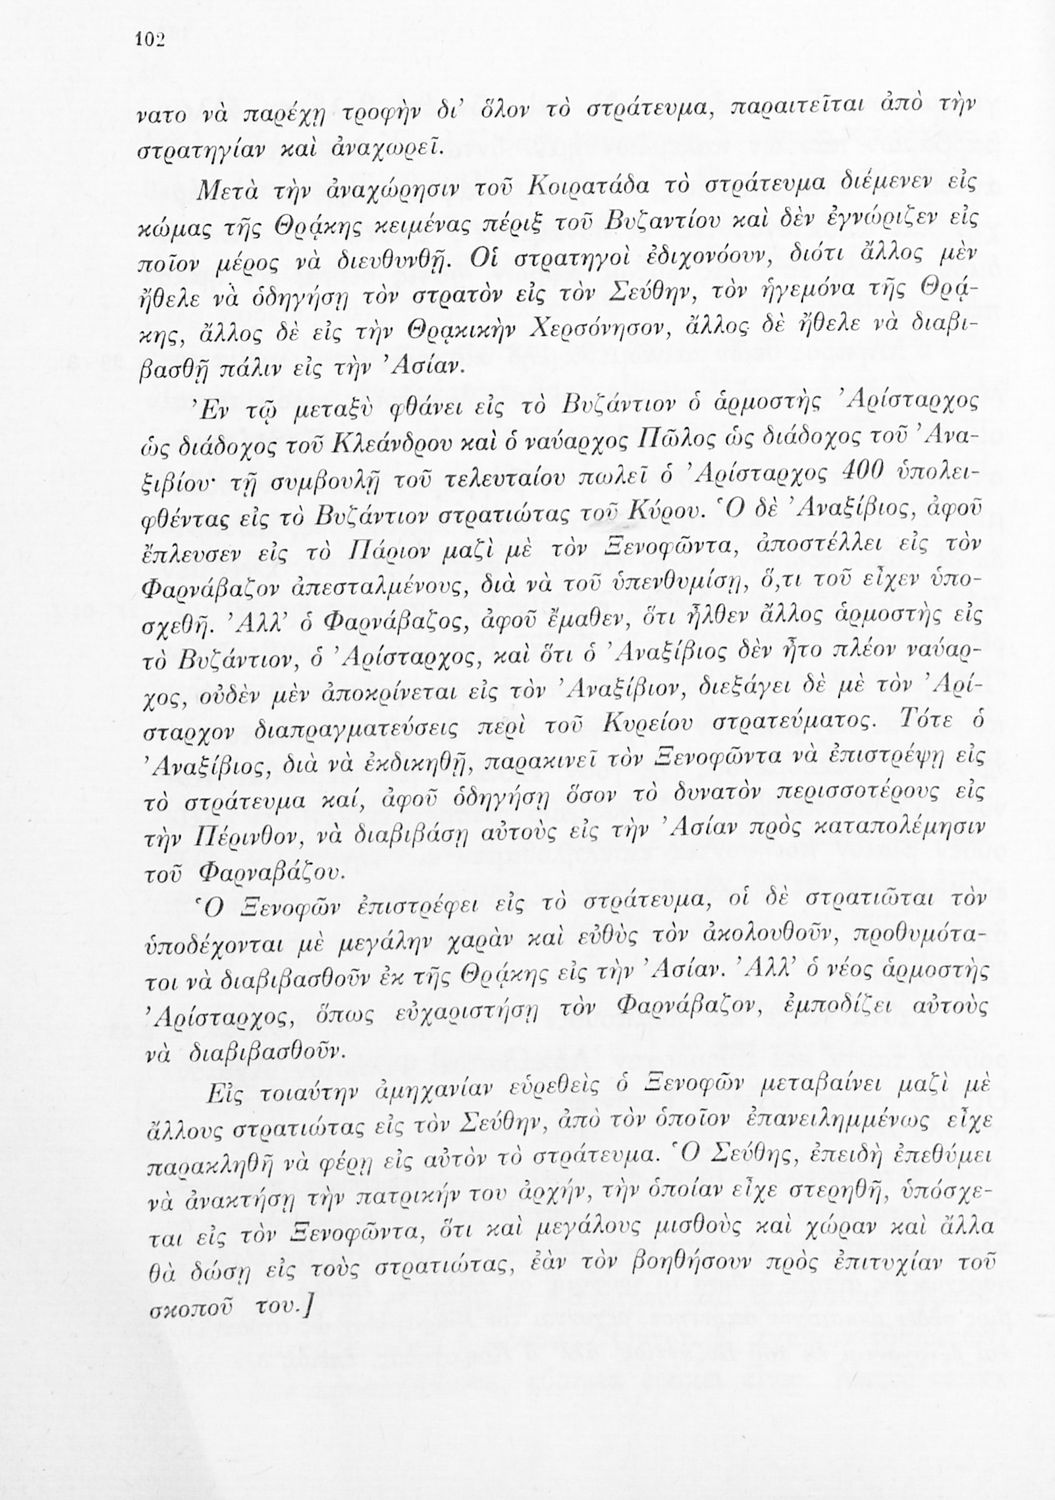 102
νατο νὰ παρέχῃ τροφὴν δι’ ὅλον τὸ στράτευμα, παραιτεῖται ἀπὸ τὴν
στρατηγίαν καὶ ἀναχωρεῖ.
Μετὰ τὴν ἀναχώρησιν τοῦ Κοιρατάδα τὸ στράτευμα διέμενεν εἰς
κώμας τῆς Θρᾴκης κειμένας πέριξ τοῦ Βυζαντίου καὶ δὲν ἐγνώριζεν εἰς
ποῖον μέρος νὰ διευθυνθῇ. Οἱ στρατηγοὶ ἐδιχονόουν, διότι ἄλλος μὲν
ἤθελε νὰ ὁδηγήσῃ τὸν στρατὸν εἰς τὸν Σεύθην, τὸν ἡγεμόνα τῆς Θρᾴ-
κης, ἄλλος δὲ εἰς τὴν Θρᾳκικὴν Χερσόνησον, ἄλλος δὲ ἤθελε νὰ διαβι-
βασθῇ πάλιν εἰς τὴν Ἀσίαν.
Ἐν τῷ μεταξὺ φθάνει εἰς τὸ Βυζάντιον ὁ ἁρμοστὴς Ἀρίσταρχος
ὡς διάδοχος τοῦ Κλεάνδρου καὶ ὁ ναύαρχος Πῶλος ὡς διάδοχος τοῦ Ἀνα-
ξιβίου· τῇ συμβουλῇ τοῦ τελευταίου πωλεῖ ὁ Ἀρίσταρχος 400 ὑπολει-
φθέντας εἰς τὸ Βυζάντιον στρατιώτας τοῦ Κύρου. Ὁ δὲ Ἀναξίβιος, ἀφοῦ
ἔπλευσεν εἰς τὸ Πάριον μαζὶ μὲ τὸν Ξενοφῶντα, ἀποστέλλει εἰς τὸν
Φαρνάβαζον ἀπεσταλμένους, διὰ νὰ τοῦ ὑπενθυμίσῃ, ὅ,τι τοῦ εἶχεν ὑπο-
σχεθῆ. Ἀλλ’ ὁ Φαρνάβαζος, ἀφοῦ ἔμαθεν, ὅτι ἦλθεν ἄλλος ἁρμοστὴς εἰς
τὸ Βυζάντιον, ὁ Ἀρίσταρχος, καὶ ὅτι ὁ Ἀναξίβιος δὲν ἦτο πλέον ναύαρ-
χος, οὐδὲν μὲν ἀποκρίνεται εἰς τὸν Ἀναξίβιον, διεξάγει δὲ μὲ τὸν Ἀρί-
σταρχον διαπραγματεύσεις περὶ τοῦ Κυρείου στρατεύματος. Τότε ὁ
Ἀναξίβιος, διὰ νὰ ἐκδικηθῇ, παρακινεῖ τὸν Ξενοφῶντα νὰ ἐπιστρέψῃ εἰς
τὸ στράτευμα καί, ἀφοῦ ὁδηγήσῃ ὅσον τὸ δυνατὸν περισσοτέρους εἰς
τὴν Πέρινθον, νὰ διαβιβάσῃ αὐτοὺς εἰς τὴν Ἀσίαν πρὸς καταπολέμησιν
τοῦ Φαρναβάζου.
Ὁ Ξενοφῶν ἐπιστρέφει εἰς τὸ στράτευμα, οἱ δὲ στρατιῶται τὸν
ὑποδέχονται μὲ μεγάλην χαρὰν καὶ εὐθὺς τὸν ἀκολουθοῦν, προθυμότα-
τοι νὰ διαβιβασθοῦν ἐκ τῆς Θρᾴκης εἰς τὴν Ἀσίαν. Ἀλλ’ ὁ νέος ἁρμοστὴς
Ἀρίσταρχος, ὅπως εὐχαριστήσῃ τὸν Φαρνάβαζον, ἐμποδίζει αὐτοὺς
νὰ διαβιβασθοῦν.
Εἰς τοιαύτην ἀμηχανίαν εὑρεθεὶς ὁ Ξενοφῶν μεταβαίνει μαζὶ μὲ
ἄλλους στρατιώτας εἰς τὸν Σεύθην, ἀπὸ τὸν ὁποῖον ἐπανειλημμένως εἶχε
παρακληθῆ νὰ φέρῃ εἰς αὐτὸν τὸ στράτευμα. Ὁ Σεύθης, ἐπειδὴ ἐπεθύμει
νὰ ἀνακτήσῃ τὴν πατρικήν του ἀρχήν, τὴν ὁποίαν εἶχε στερηθῆ, ὑπόσχε-
ται εἰς τὸν Ξενοφῶντα, ὅτι καὶ μεγάλους μισθοὺς καὶ χώραν καὶ ἄλλα
θὰ δώσῃ εἰς τοὺς στρατιώτας, ἐὰν τὸν βοηθήσουν πρὸς ἐπιτυχίαν τοῦ
σκοποῦ του.]